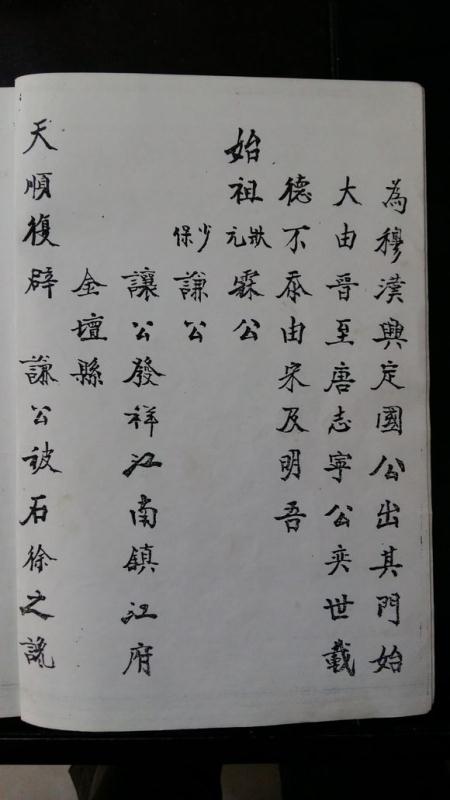 為穆漢興定國公出其門始
大由晋至唐志寧公奕世載
德不忝由宋及明吾
始祖狀元霖公
少保謙公
讓公發祥江南鎮江府
金壇縣
天順復辟 謙公被石徐之謊